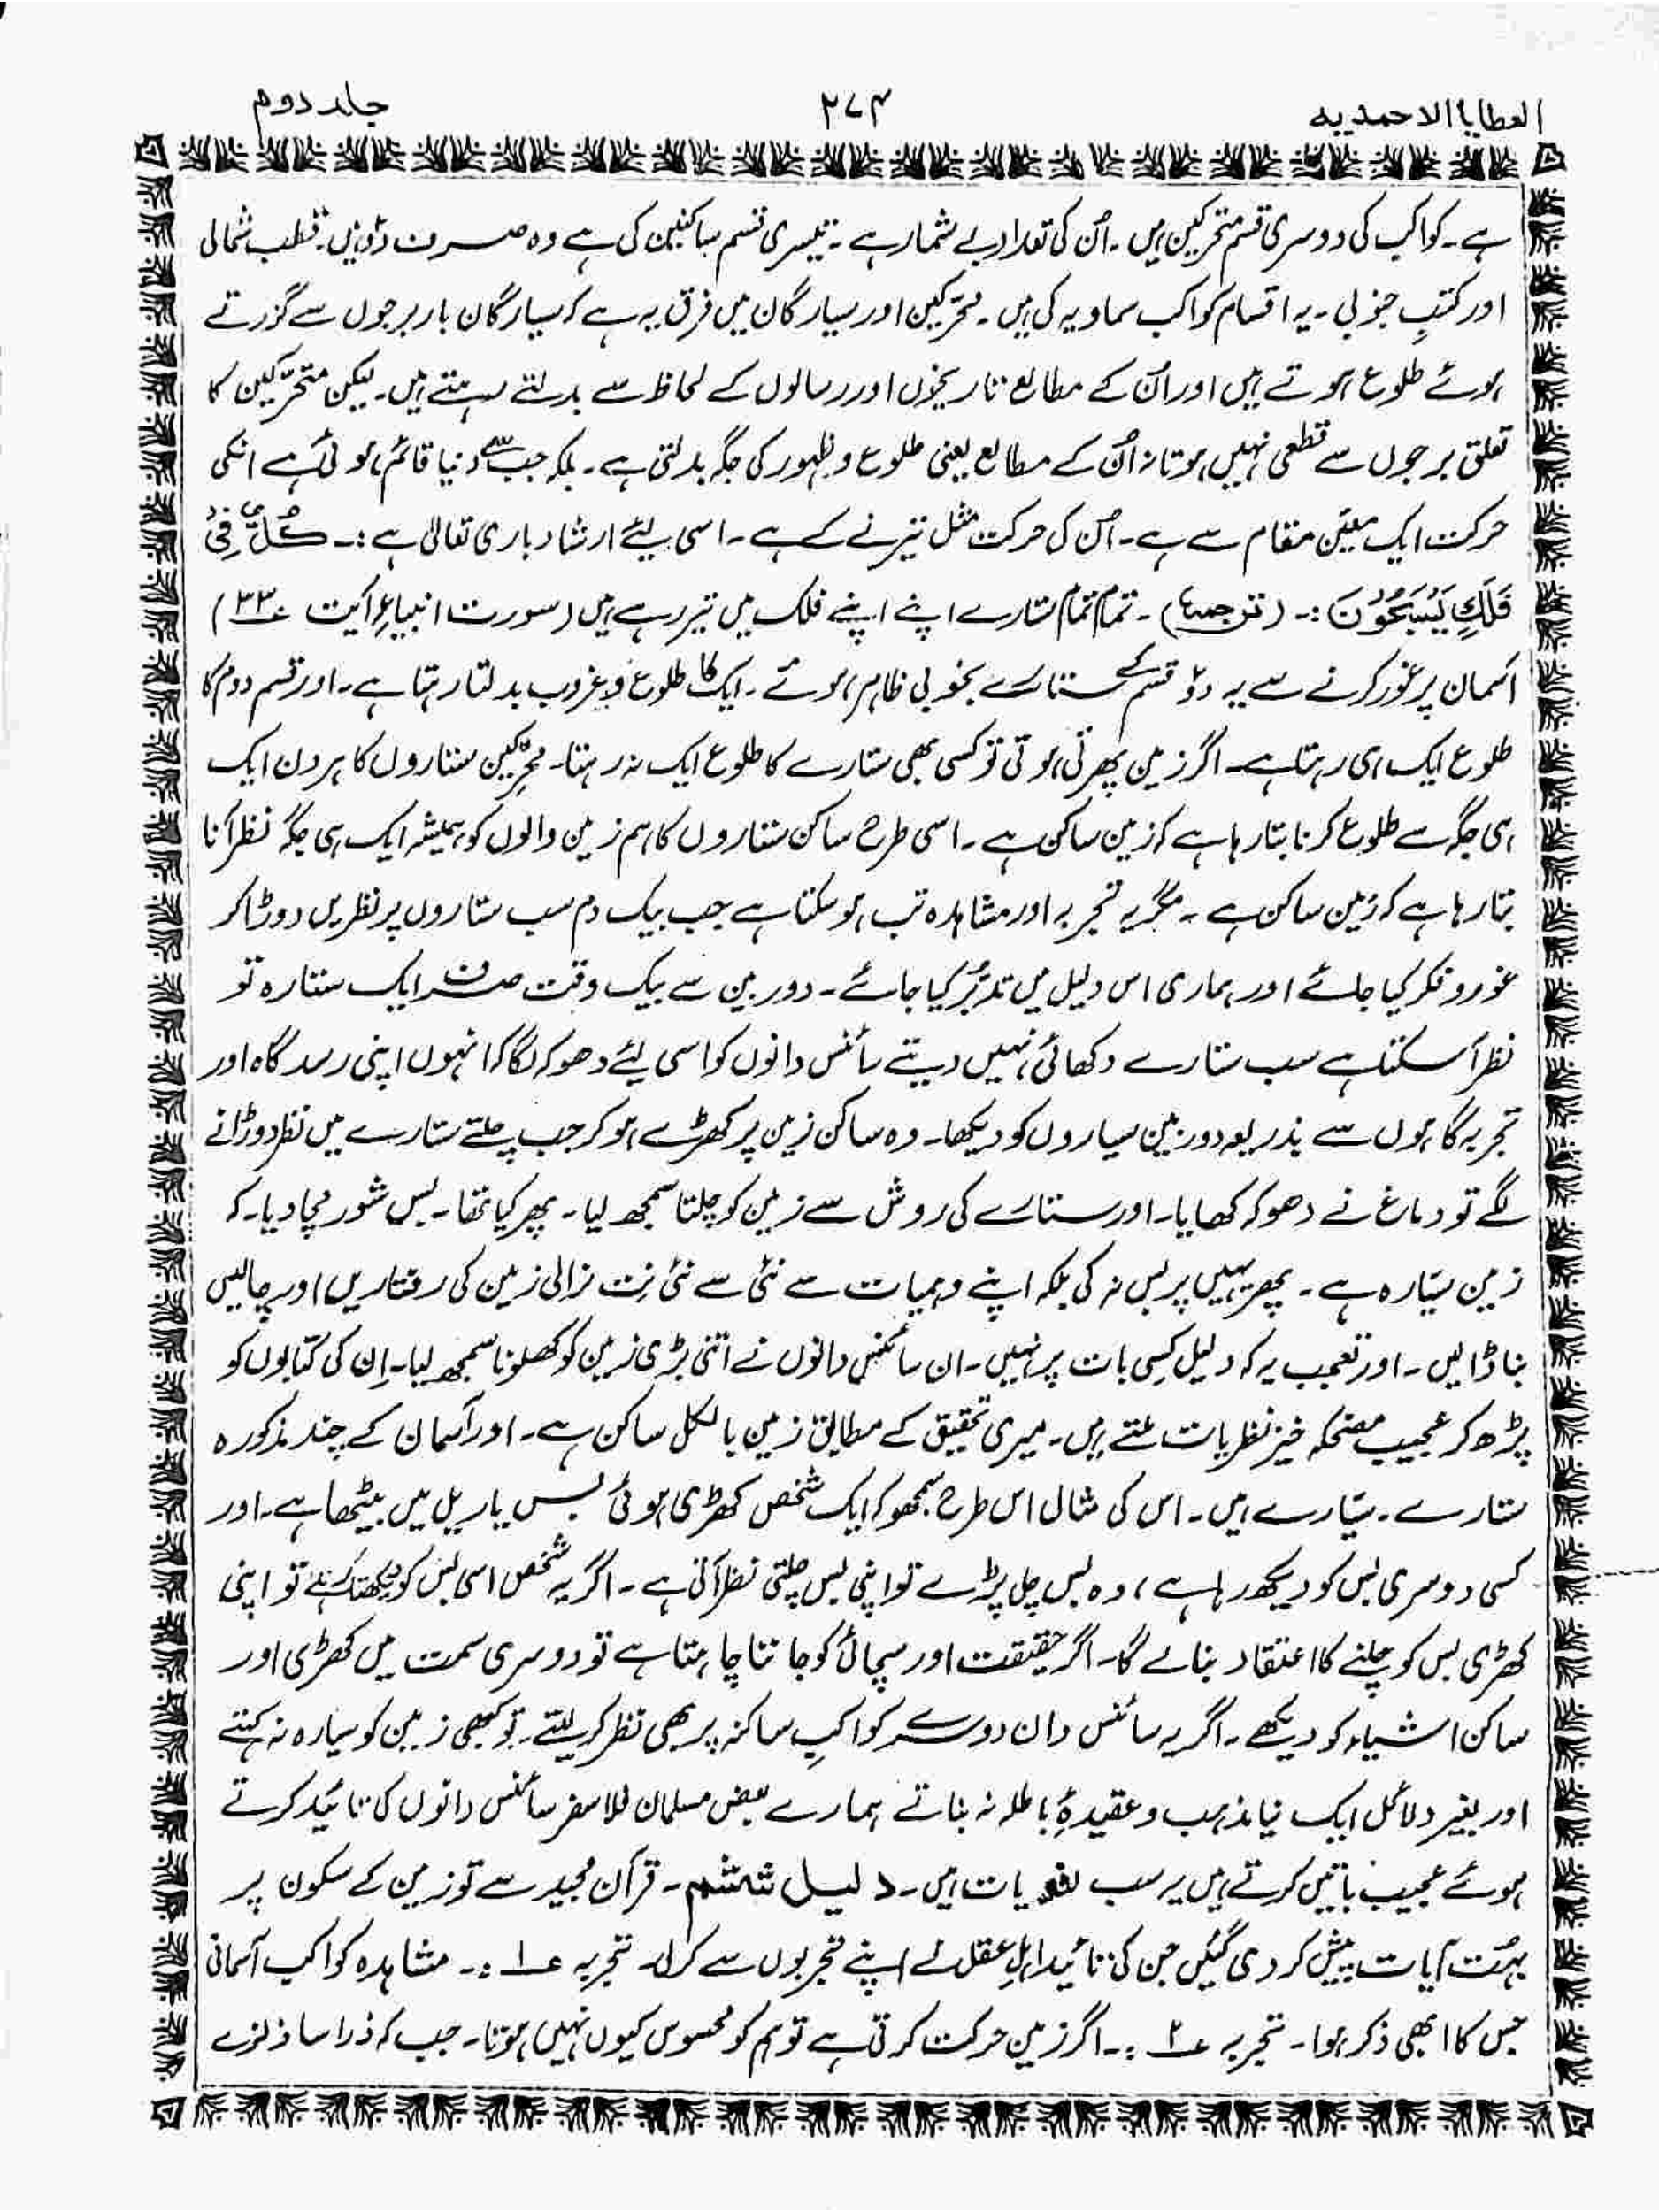 العطایا الاحمدیہ ۲۷۴ جلد دوم
ہے۔ کواکب کی دوسری قسم متحرکین ہیں۔ اُن کی تعداد بے شمار ہے۔ تیسری قسم ساکنین کی ہے وہ صرف دو ہیں۔ قطب شمالی
اور کتبِ جنوبی۔ یہ اقسام کواکب سماویہ کی ہیں۔ محرّکین اور سیارگان میں فرق یہ ہے کہ سیارگان بار برجوں سے گزرتے
ہوئے طلوع ہوتے ہیں اور اُن کے مطالع تاریخوں اور رسالوں کے لحاظ سے بدلتے رہتے ہیں۔ لیکن متحرّکین کا
تعلق برجوں سے قطعی نہیں ہوتا نہ اُن کے مطالع یعنی طلوع و ظہور کی جگہ بدلتی ہے۔ بلکہ جب سے دنیا قائم ہوئی ہے انکی
حرکت ایک معیّن مقام سے ہے۔ اُس کی حرکت مثل تیرنے کے ہے۔ اسی لیئے ارشاد باری تعالیٰ ہے :۔ کُلٌّ فِیْ
فَلَكٍ یَّسْبَحُوْنَ :۔ (ترجمہ)۔ تمام تمام ستارے اپنے اپنے فلک میں تیر رہے ہیں (سورت انبیاء آیت ۳۳)
آسمان پر غور کرنے سے یہ دو قسم کے ستارے بخوبی ظاہر ہوئے۔ ایک کا طلوع و غروب بدلتا رہتا ہے۔ اور قسم دوم کا
طلوع ایک ہی رہتا ہے۔ اگر زمین پھرتی ہوتی تو کسی بھی ستارے کا طلوع ایک نہ رہتا۔ محرّکین ستاروں کا ہر دن ایک
ہی جگہ سے طلوع کرنا بتا رہا ہے کہ زمین ساکن ہے۔ اسی طرح ساکن ستاروں کا ہم زمین والوں کو ہمیشہ ایک ہی جگہ نظر آنا
بتا رہا ہے کہ زمین ساکن ہے۔ مگر یہ تجربہ اور مشاہدہ تب ہو سکتا ہے جب بیک دم سب ستاروں پر نظریں دوڑا کر
غور و فکر کیا جائے اور ہماری اس دلیل میں تدبُّر کیا جائے۔ دوربین سے بیک وقت صرف ایک ستارہ تو
نظر آسکتا ہے سب ستارے دکھائی نہیں دیتے سائنس دانوں کو اسی لیئے دھوکہ لگا کہ انہوں اپنی رسدگاہ اور
تجربہ گاہوں سے بذریعہ دوربین سیاروں کو دیکھا۔ وہ ساکن زمین پر کھڑے ہو کر جب چلتے ستارے میں نظر دوڑانے
لگے تو دماغ نے دھوکہ کھایا۔ اور ستارے کی روش سے زمین کو چلتا سمجھ لیا۔ پھر کیا تھا۔ بس شور مچا دیا۔ کہ
زمین سیّارہ ہے۔ پھر یہیں پر بس نہ کی بلکہ اپنے وہمیات سے نئی سے نئی نِت نرالی زمین کی رفتاریں اور چالیں
بنا ڈالیں۔ اور تعجب یہ کہ دلیل کسی بات پر نہیں۔ ان سائنس دانوں نے اتنی بڑی زمین کو کھلونا سمجھ لیا۔ اِن کی کتابوں کو
پڑھ کر عجیب مضحکہ خیز نظریات ملتے ہیں۔ میری تحقیق کے مطابق زمین بالکل ساکن ہے۔ اور آسمان کے چند مذکورہ
ستارے۔ سیّارے ہیں۔ اس کی مثال اس طرح سمجھو کہ ایک شخص کھڑی ہوئی بس یا ریل میں بیٹھا ہے۔ اور
کسی دوسری بس کو دیکھ رہا ہے، وہ بس چل پڑے تو اپنی بس چلتی نظر آتی ہے۔ اگر یہ شخص اسی بس کو دیکھتا رہے تو اپنی
کھڑی بس کو چلنے کا اعتقاد بنالے گا۔ اگر حقیقت اور سچائی کو جاننا چاہتا ہے تو دوسری سمت میں کھڑی اور
ساکن اشیاء کو دیکھے۔ اگر یہ سائنس دان دوسرے کواکبِ ساکنہ پر بھی نظر کر لیتے۔ تو کبھی زمین کو سیارہ نہ کہتے
اور بغیر دلائل ایک نیا مذہب و عقیدۂِ باطلہ نہ بناتے ہمارے بعض مسلمان فلاسفر سائنس دانوں کی تائید کرتے
ہوئے عجیب باتیں کرتے ہیں یہ سب لغویات ہیں۔ دلیل ششم۔ قرآن مجید سے تو زمین کے سکون پر
بہت آیات پیش کر دی گئیں جن کی تائید اہلِ عقل نے اپنے تجربوں سے کرلی۔ تجربہ ۱ :۔ مشاہدہ کواکب آسمانی
جس کا ابھی ذکر ہوا۔ تجربہ ۲ :۔ اگر زمین حرکت کرتی ہے تو ہم کو محسوس کیوں نہیں ہوتا۔ جب کہ ذرا سا ذلزلے